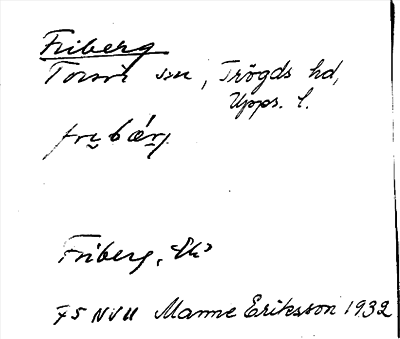 Friberg
Torsvi sn, Trögds hd,
Upps. l.
fri̯bǽrj
Friberg, Eh
FS NVU Manne Eriksson 1932